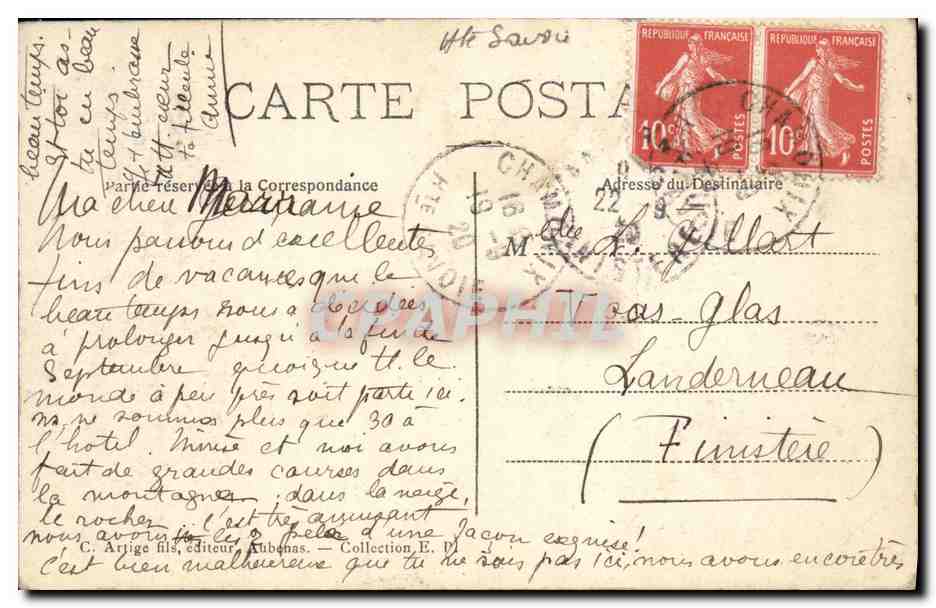 Hte Savoie
CARTE POSTA
REPUBLIQUE FRANÇAISE
10c POSTES
REPUBLIQUE FRANÇAISE
10c POSTES
CHAMONIX
16 -9
20
HTE SAVOIE
Partie réservée à la Correspondance
Adresse du Destinataire
Ma chère Marraine
Nous passons d'excellentes
fins de vacances que le
beau temps nous a décidées
à prolonger jusqu'à la fin de
Septembre quoique tt. le
monde à peu près soit parti ici.
ns. ne sommes plus que 30 à
l'hôtel. Mimie et moi avons
fait de grandes courses dans
la montagne, dans la neige,
le rocher. c'est très amusant
nous avons les 2 pelé d'une façon exquise!
c'est bien malheureux que tu ne sois pas ici, nous avons encore très
beau temps.
et toi as-
tu eu beau
temps.
Je t'embrasse
tt. cœur
ta filleule
Anne
Melle L.
Traas-Glas
Landerneau
(Finistère)
C. Artige fils, éditeur, Aubenas. — Collection E. D
CPAPHIL